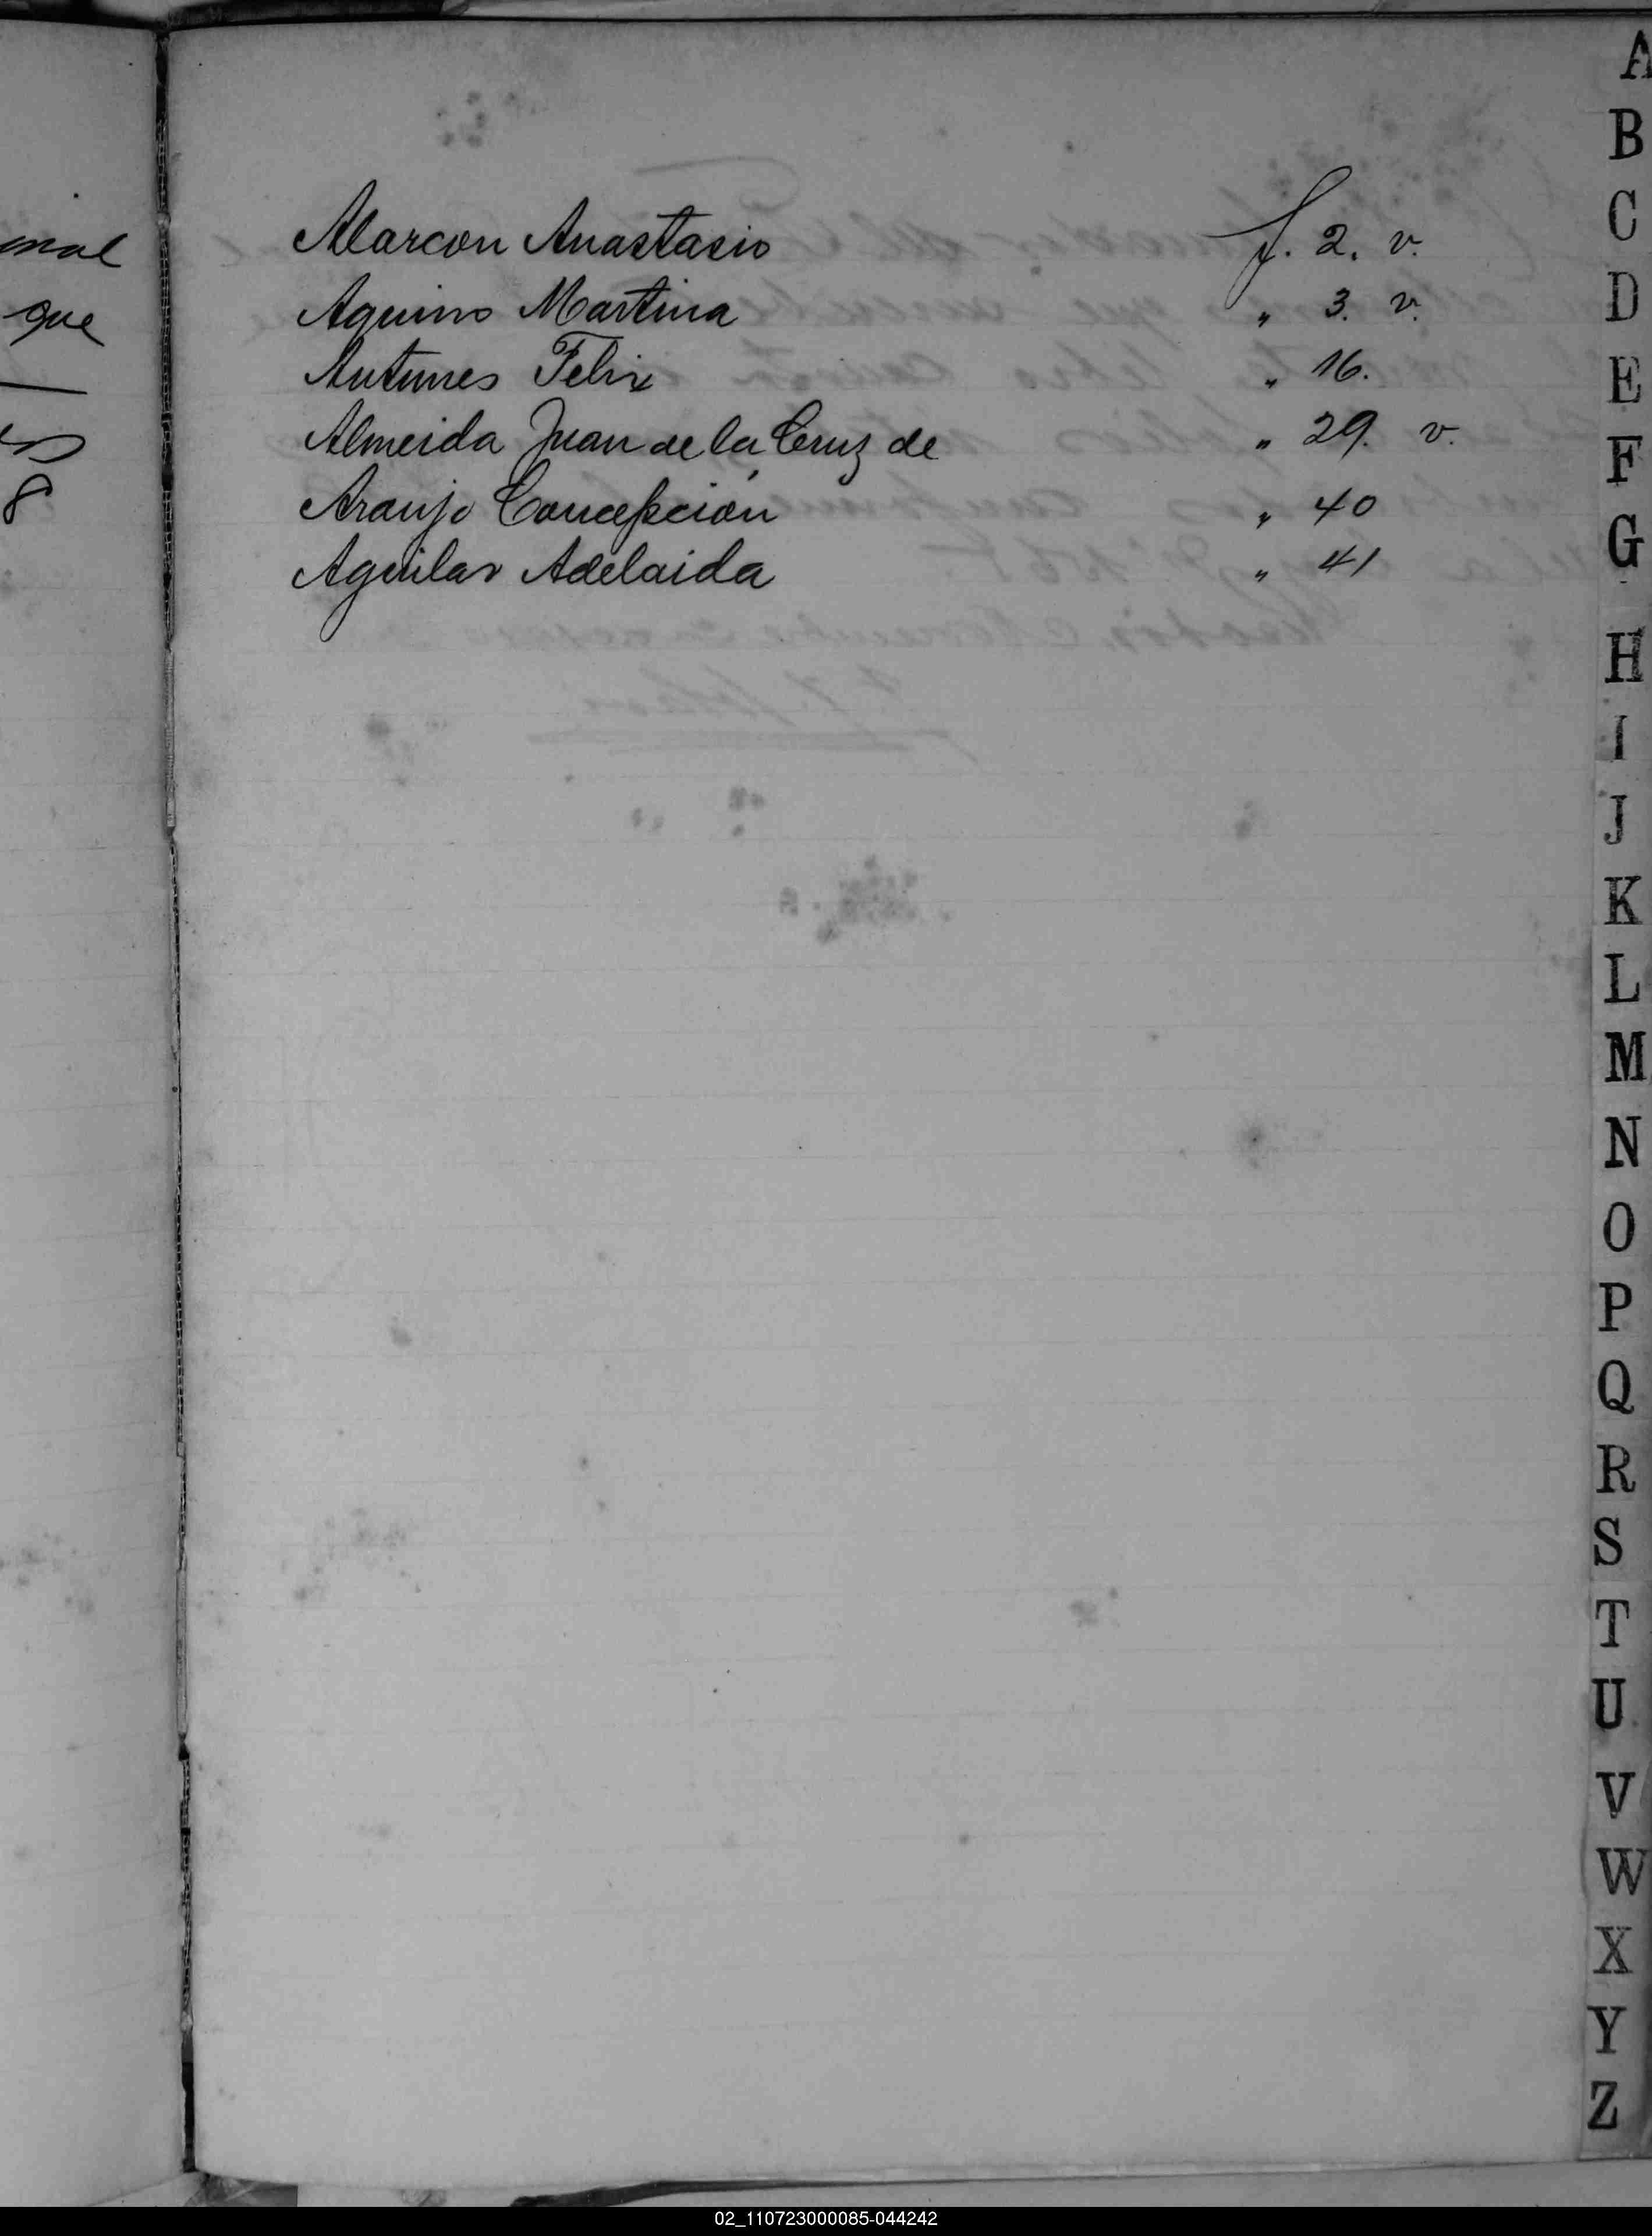 Alarcon Anastasio f. 2. v.
Aquino Martina " 3. v.
Antunes Felix " 16.
Almeida Juan de la Cruz de " 29. v.
Araujo Concepción " 40
Aguilar Adelaida " 41
que
8
A
B
C
D
E
F
G
H
I
J
K
L
M
N
O
P
Q
R
S
T
U
V
W
X
Y
Z
02_110723000085-044242